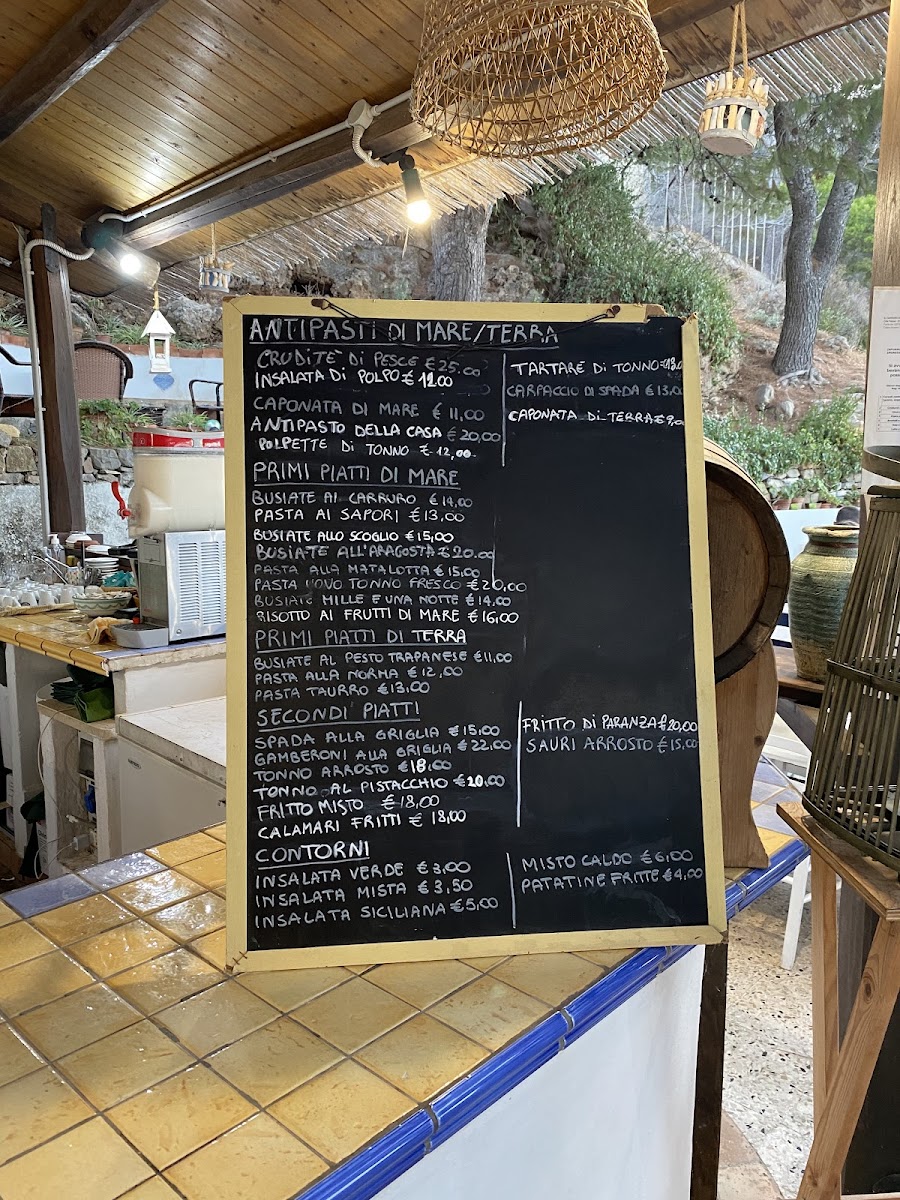 ANTIPASTI DI MARE/TERRA
CRUDITÈ DI PESCE €25.00
INSALATA DI POLPO € 12.00
CAPONATA DI MARE € 11,00
ANTIPASTO DELLA CASA € 20,00
POLPETTE DI TONNO € 12,00
TARTARE DI TONNO €13,0
CARPACCIO DI SPADA €13,00
CAPONATA DI TERRA € 9,00
PRIMI PIATTI DI MARE
BUSIATE AI CARRURO €14,00
PASTA AI SAPORI €13,00
BUSIATE ALLO SCOGLIO €15,00
BUSIATE ALL'ARAGOSTA €20.00
PASTA ALLA MATALOTTA €15,00
PASTA UOVO TONNO FRESCO €20,00
BUSIATE MILLE E UNA NOTTE €14,00
RISOTTO AI FRUTTI DI MARE €16,00
PRIMI PIATTI DI TERRA
BUSIATE AL PESTO TRAPANESE €11,00
PASTA ALLA NORMA €12,00
PASTA TAURRO €13,00
SECONDI PIATTI
SPADA ALLA GRIGLIA €15,00
GAMBERONI ALLA GRIGLIA €22,00
TONNO ARROSTO €18,00
TONNO AL PISTACCHIO €20,00
FRITTO MISTO €18,00
CALAMARI FRITTI € 18,00
FRITTO DI PARANZA €20,00
SAURI ARROSTO €15,00
CONTORNI
INSALATA VERDE €3,00
INSALATA MISTA €3,50
INSALATA SICILIANA €5,00
MISTO CALDO €6,00
PATATINE FRITTE €4,00